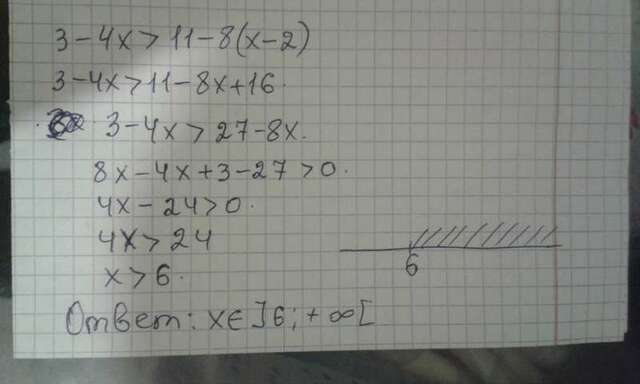 3-4x>11-8(x-2)
3-4x>11-8x+16.
3-4x>27-8x.
8x-4x+3-27>0.
4x-24>0.
4x>24
x>6.
6
Ответ: x∈]6;+∞[